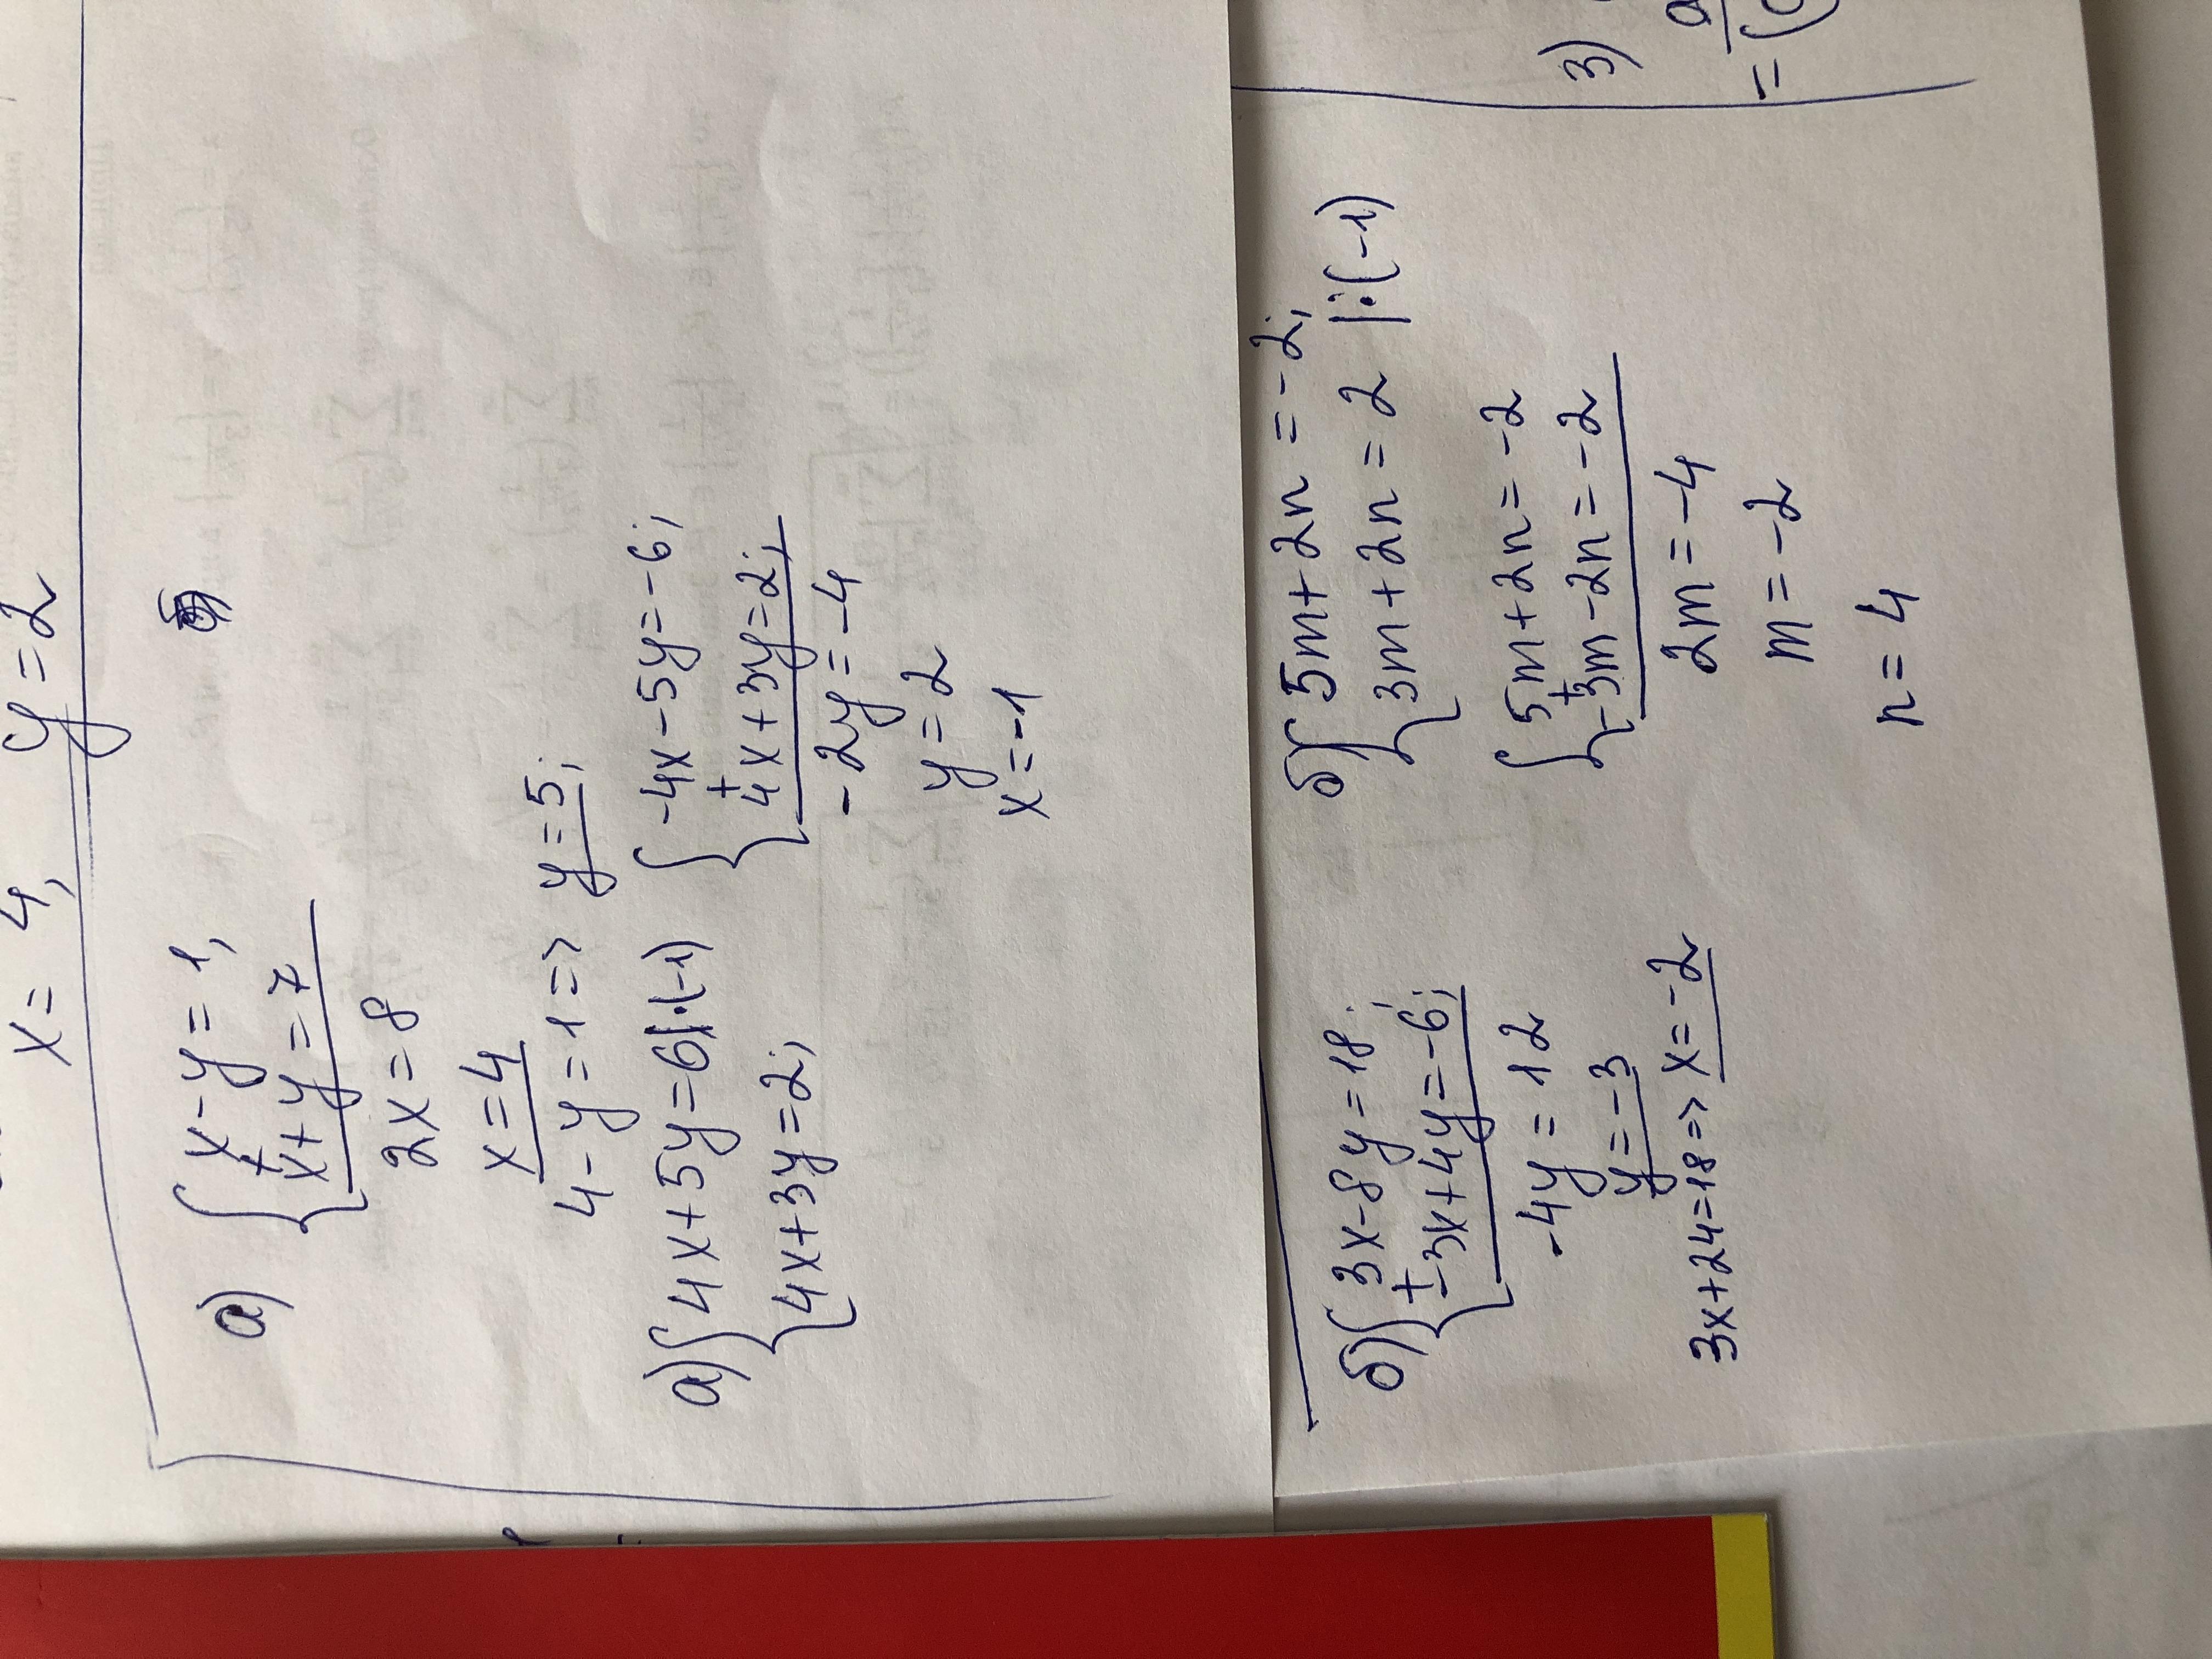 x = 4, y = 2
а) { x - y = 1,
+
x + y = 7
2x = 8
x = 4
4 - y = 1 => y = 5;
а) { 4x + 5y = 6 |·(-1)
4x + 3y = 2;
{ -4x - 5y = -6;
+
4x + 3y = 2;
-2y = -4
y = 2
x = -1
б) { 3x - 8y = 18;
+
-3x + 4y = -6;
-4y = 12
y = -3
3x + 24 = 18 => x = -2
б) { 5m + 2n = -2;
3m + 2n = 2 |:(-1)
{ 5m + 2n = -2
+
-3m - 2n = -2
2m = -4
m = -2
n = 4
3)